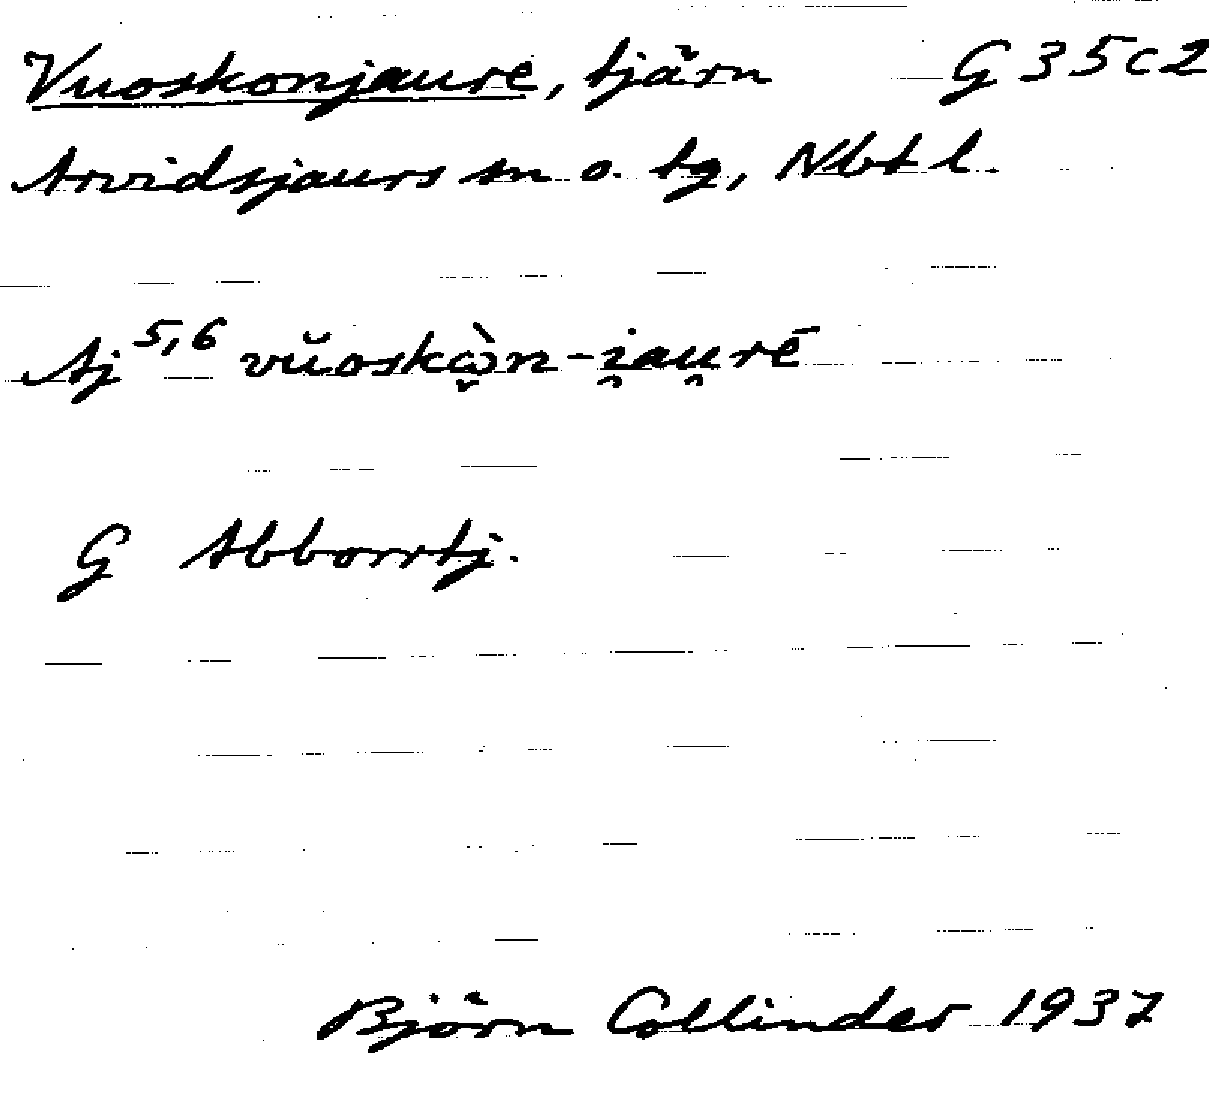 Vuoskonjaure, tjärn G 35c2
Arvidsjaurs sn o. tg, Nbt l.
Aj 5,6 vŭoskὼ̬n-i̯au̯rē
G Abborrtj.
Björn Collinder 1937